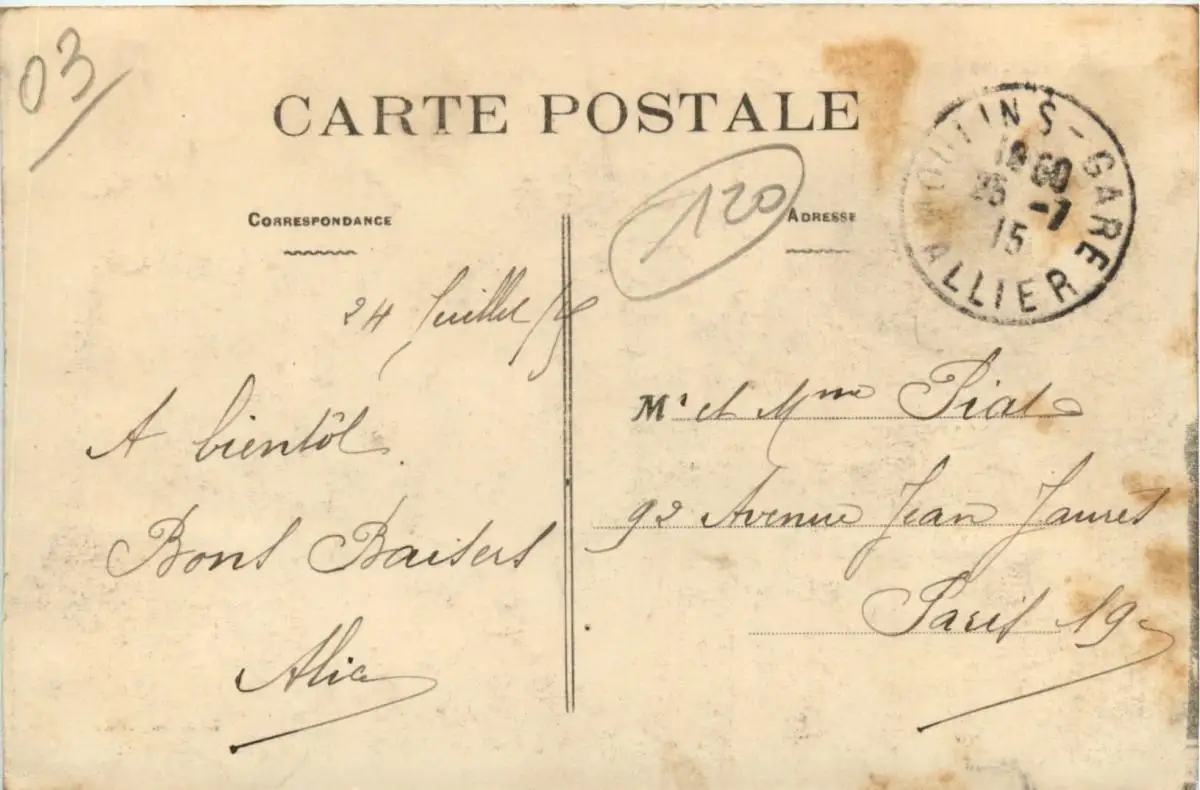 03
CARTE POSTALE
120
CORRESPONDANCE
ADRESSE
MOULINS-GARE
-7
15
ALLIER
24 Juillet 15
A bientôt
Bons Baisers
Alice
Mr et Mme Piat
92 Avenue Jean Jaures
Paris 19e